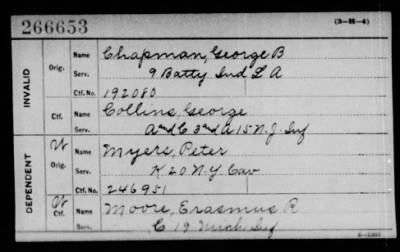 266653
(3-H-4)
INVALID
Orig.
Name Chapman, George B
Serv. 9 Batty Ind L A
Ctf. No. 192080
Ctf.
Name Collins, George
Serv. A and C 3rd A 15 N.J. Inf
DEPENDENT
W
Orig.
Name Myers, Peter
Serv. K 20 N.Y. Cav
Ctf. No. 246951
W
Ctf.
Name Moore, Erasmus R
Serv. C 19 Mich Inf